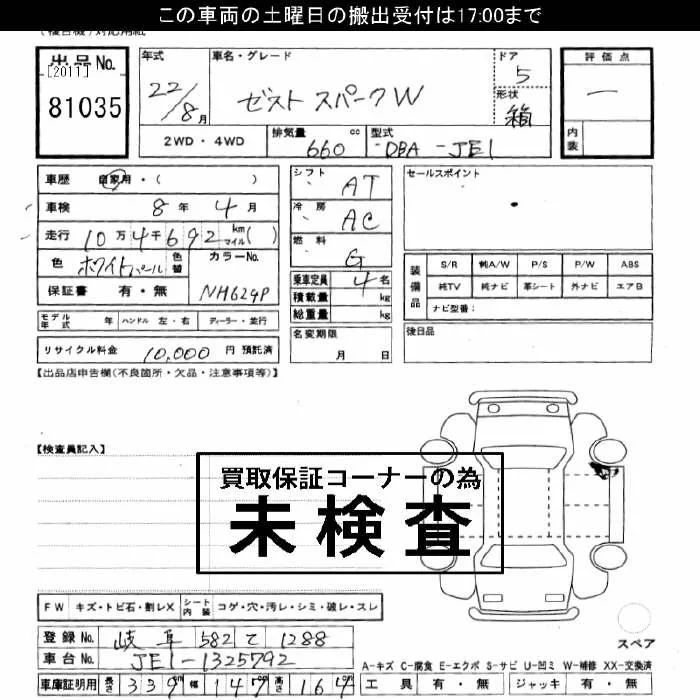 この車両の土曜日の搬出受付は17:00まで
(複合機)対応用紙
出品No.
[2011]
81035
年式
22/8月
車名・グレード
ゼスト スパークW
ドア
5
形状
箱
評価点
内装
2WD・4WD
排気量
660 cc
型式
DBA-JE1
車歴 自家用・( )
車検 8年 4月
走行 10万4千692 km マイル( )
色 ホワイトパール 色替
カラーNo.
NH624P
保証書 有・無
シフト AT
冷房 AC
燃料 G
乗車定員 4名
積載量 kg
総重量 kg
セールスポイント
装備品
S/R 純A/W P/S P/W ABS
純TV 純ナビ 革シート 外ナビ エアB
ナビ型番:
モデル年式 年 ハンドル 左・右 ディーラー・並行
リサイクル料金 10,000 円 預託済
名変期限
月 日
後日品
【出品店申告欄(不良箇所・欠品・注意事項等)】
【検査員記入】
買取保証コーナーの為
未検査
FW キズ・トビ石・割レX シート内装 コゲ・穴・汚レ・シミ・破レ・スレ
登録No. 岐阜 582 て 1288
車台No. JE1-1325792
車庫証明用 長さ 339 幅 147 高さ 164
スペア
A-キズ C-腐食 E-エクボ S-サビ U-凹ミ W-補修 XX-交換済
工具 有・無 ジャッキ 有・無